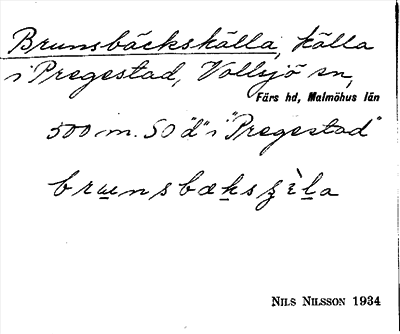 Brunsbäckskälla, källa
i Pregestad, Vollsjö sn,
Färs hd, Malmöhus län
500 m. SO "d" i "Pregestad"
NILS NILSSON 1934